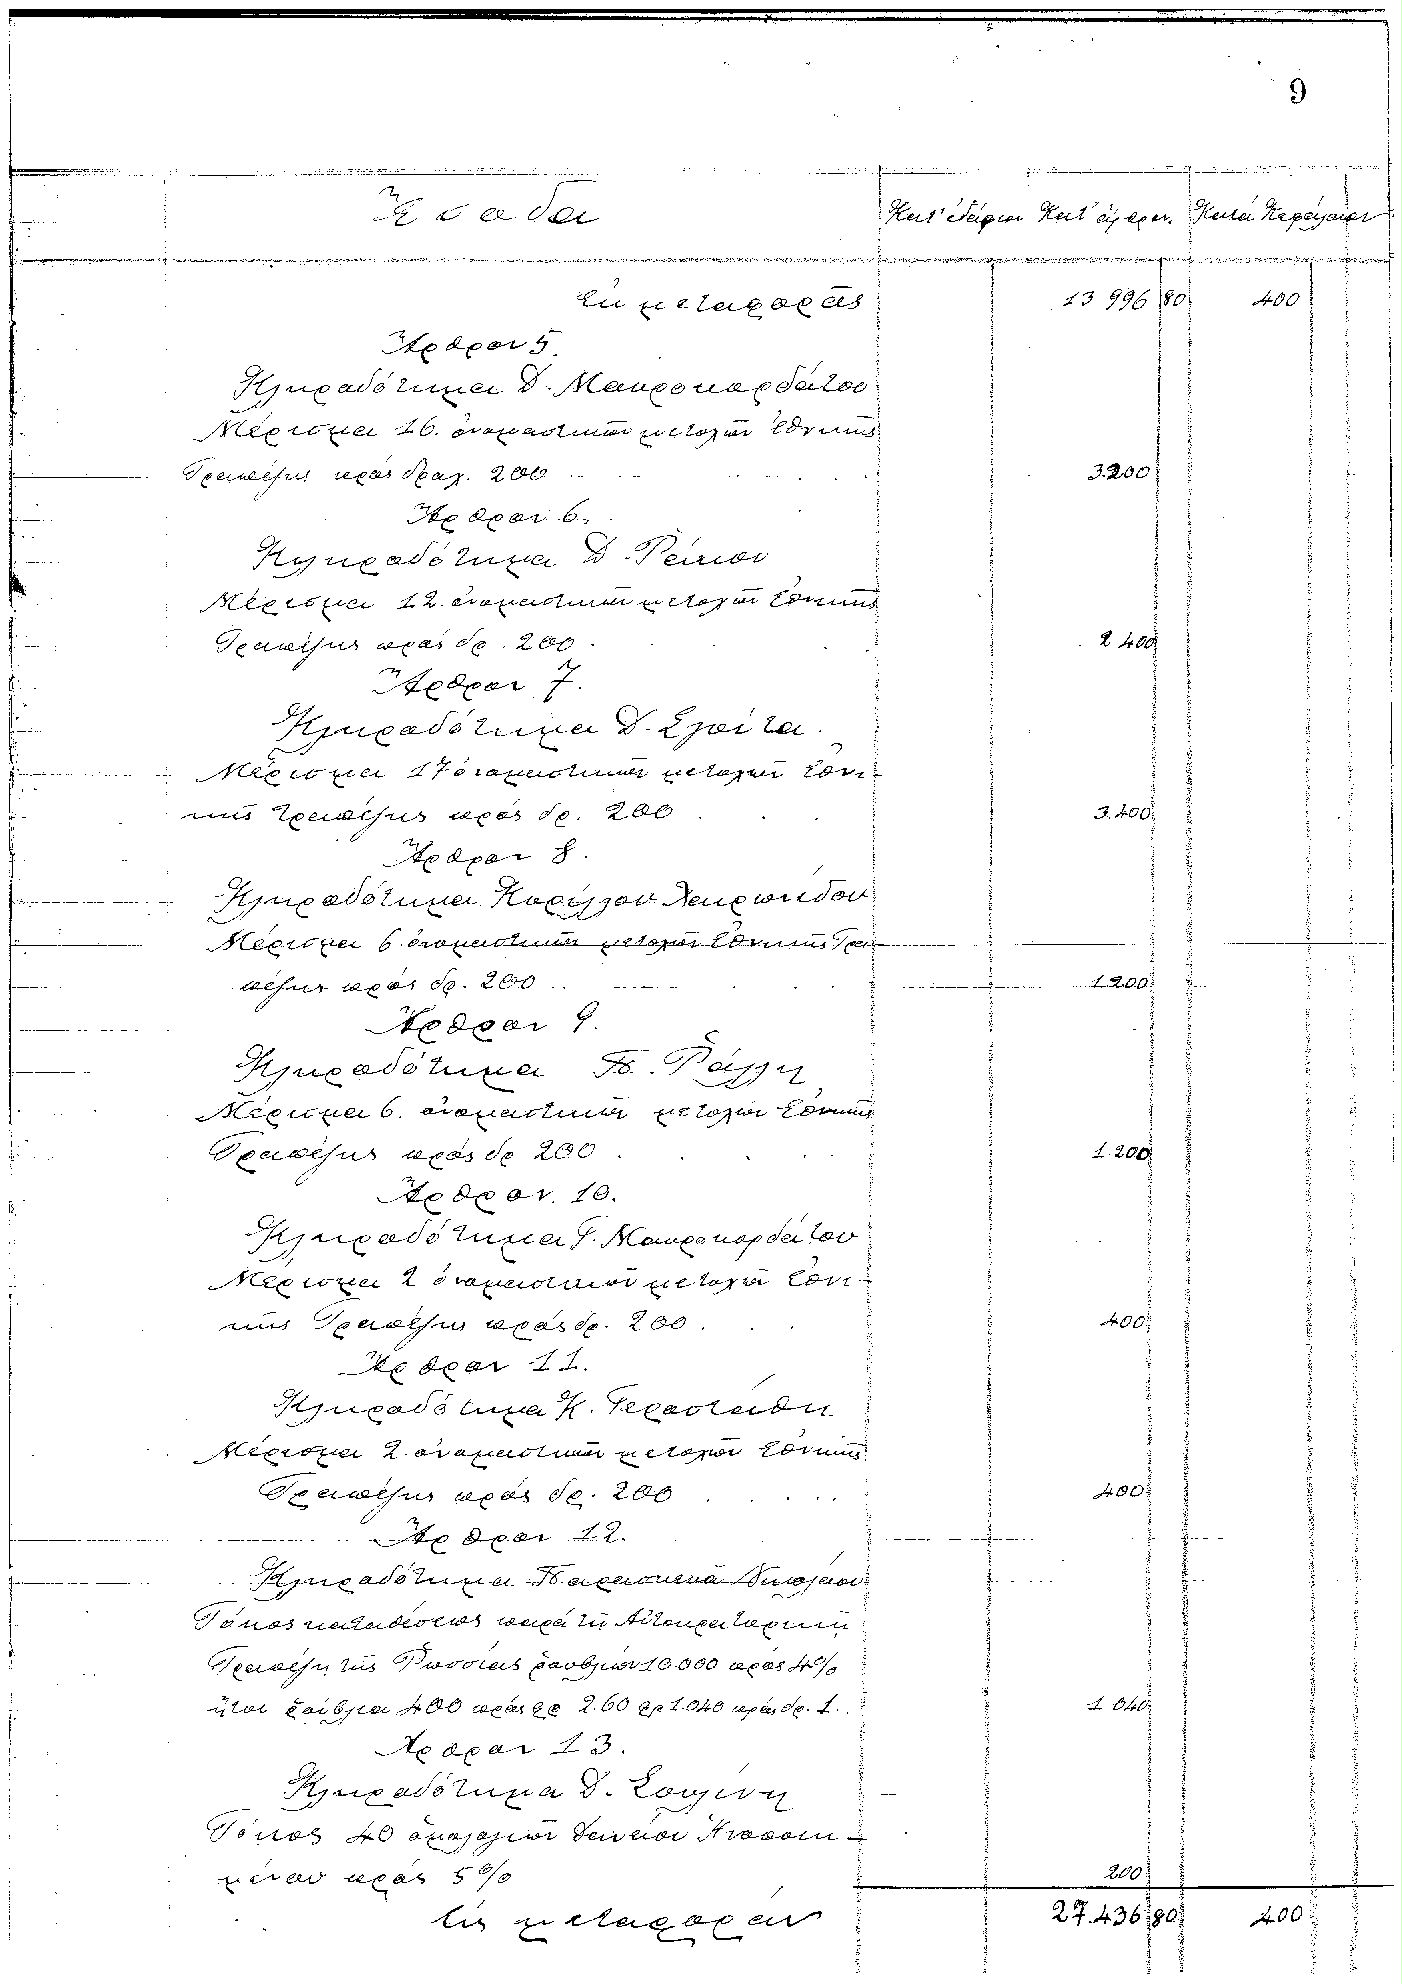 9
Ἔσοδα Κατ' ἐδάφιον Κατ' ἄρθρον. Κατὰ Κεφάλαιον
Ἐκ μεταφορᾶς 13 996 80 400
Ἄρθρον 5.
Κληροδότημα Δ. Μαυροκορδάτου
Μέρισμα 16. ὀνομαστικῶν μετοχῶν Ἐθνικῆς
Τραπέζης πρὸς δραχ. 200 3.200
Ἄρθρον 6.
Κληροδότημα Δ.
Μέρισμα 12. ὀνομαστικῶν μετοχῶν Ἐθνικῆς
Τραπέζης πρὸς δρ. 200 2 400
Ἄρθρον 7.
Κληροδότημα Δ. Σγούτα.
Μέρισμα 17 ὀνομαστικῶν μετοχῶν Ἐθνι-
κῆς Τραπέζης πρὸς δρ. 200 3.400
Ἄρθρον 8.
Κληροδότημα Κυρίλλου Χαιρωνίδου
Μέρισμα 6. ὀνομαστικῶν μετοχῶν Ἐθνικῆς Τρα-
πέζης πρὸς δρ. 200 1200
Ἄρθρον 9.
Κληροδότημα Π. Ῥάλλη
Μέρισμα 6. ὀνομαστικῶν μετοχῶν Ἐθνικῆς
Τραπέζης πρὸς δρ 200 1.200
Ἄρθρον. 10.
Κληροδότημα Γ. Μαυροκορδάτου
Μέρισμα 2 ὀνομαστικῶν μετοχῶν Ἐθνι-
κῆς Τραπέζης πρὸς δρ. 200 400
Ἄρθρον 11.
Κληροδότημα Κ. Γεροστάθη
Μέρισμα 2. ὀνομαστικῶν μετοχῶν Ἐθνικῆς
Τραπέζης πρὸς δρ. 200 400
Ἄρθρον 12.
Κληροδότημα Παρασκευᾶ Νικολάου
Τόκος καταθέσεως παρὰ τῇ Αὐτοκρατορικῇ
Τραπέζῃ τῆς Ῥωσσίας ῥουβλίων 10.000 πρὸς 4%
ἤτοι ῥούβλια 400 πρὸς φρ 2.60 φρ 1.040 πρὸς δρ. 1. 1 040
Ἄρθρον 13.
Κληροδότημα Δ. Σουλίνη
Τόκος 40 ὁμολογιῶν δανείου Νοσοκο-
μείου πρὸς 5% 200
Εἰς μεταφοράν 27.436 80 400